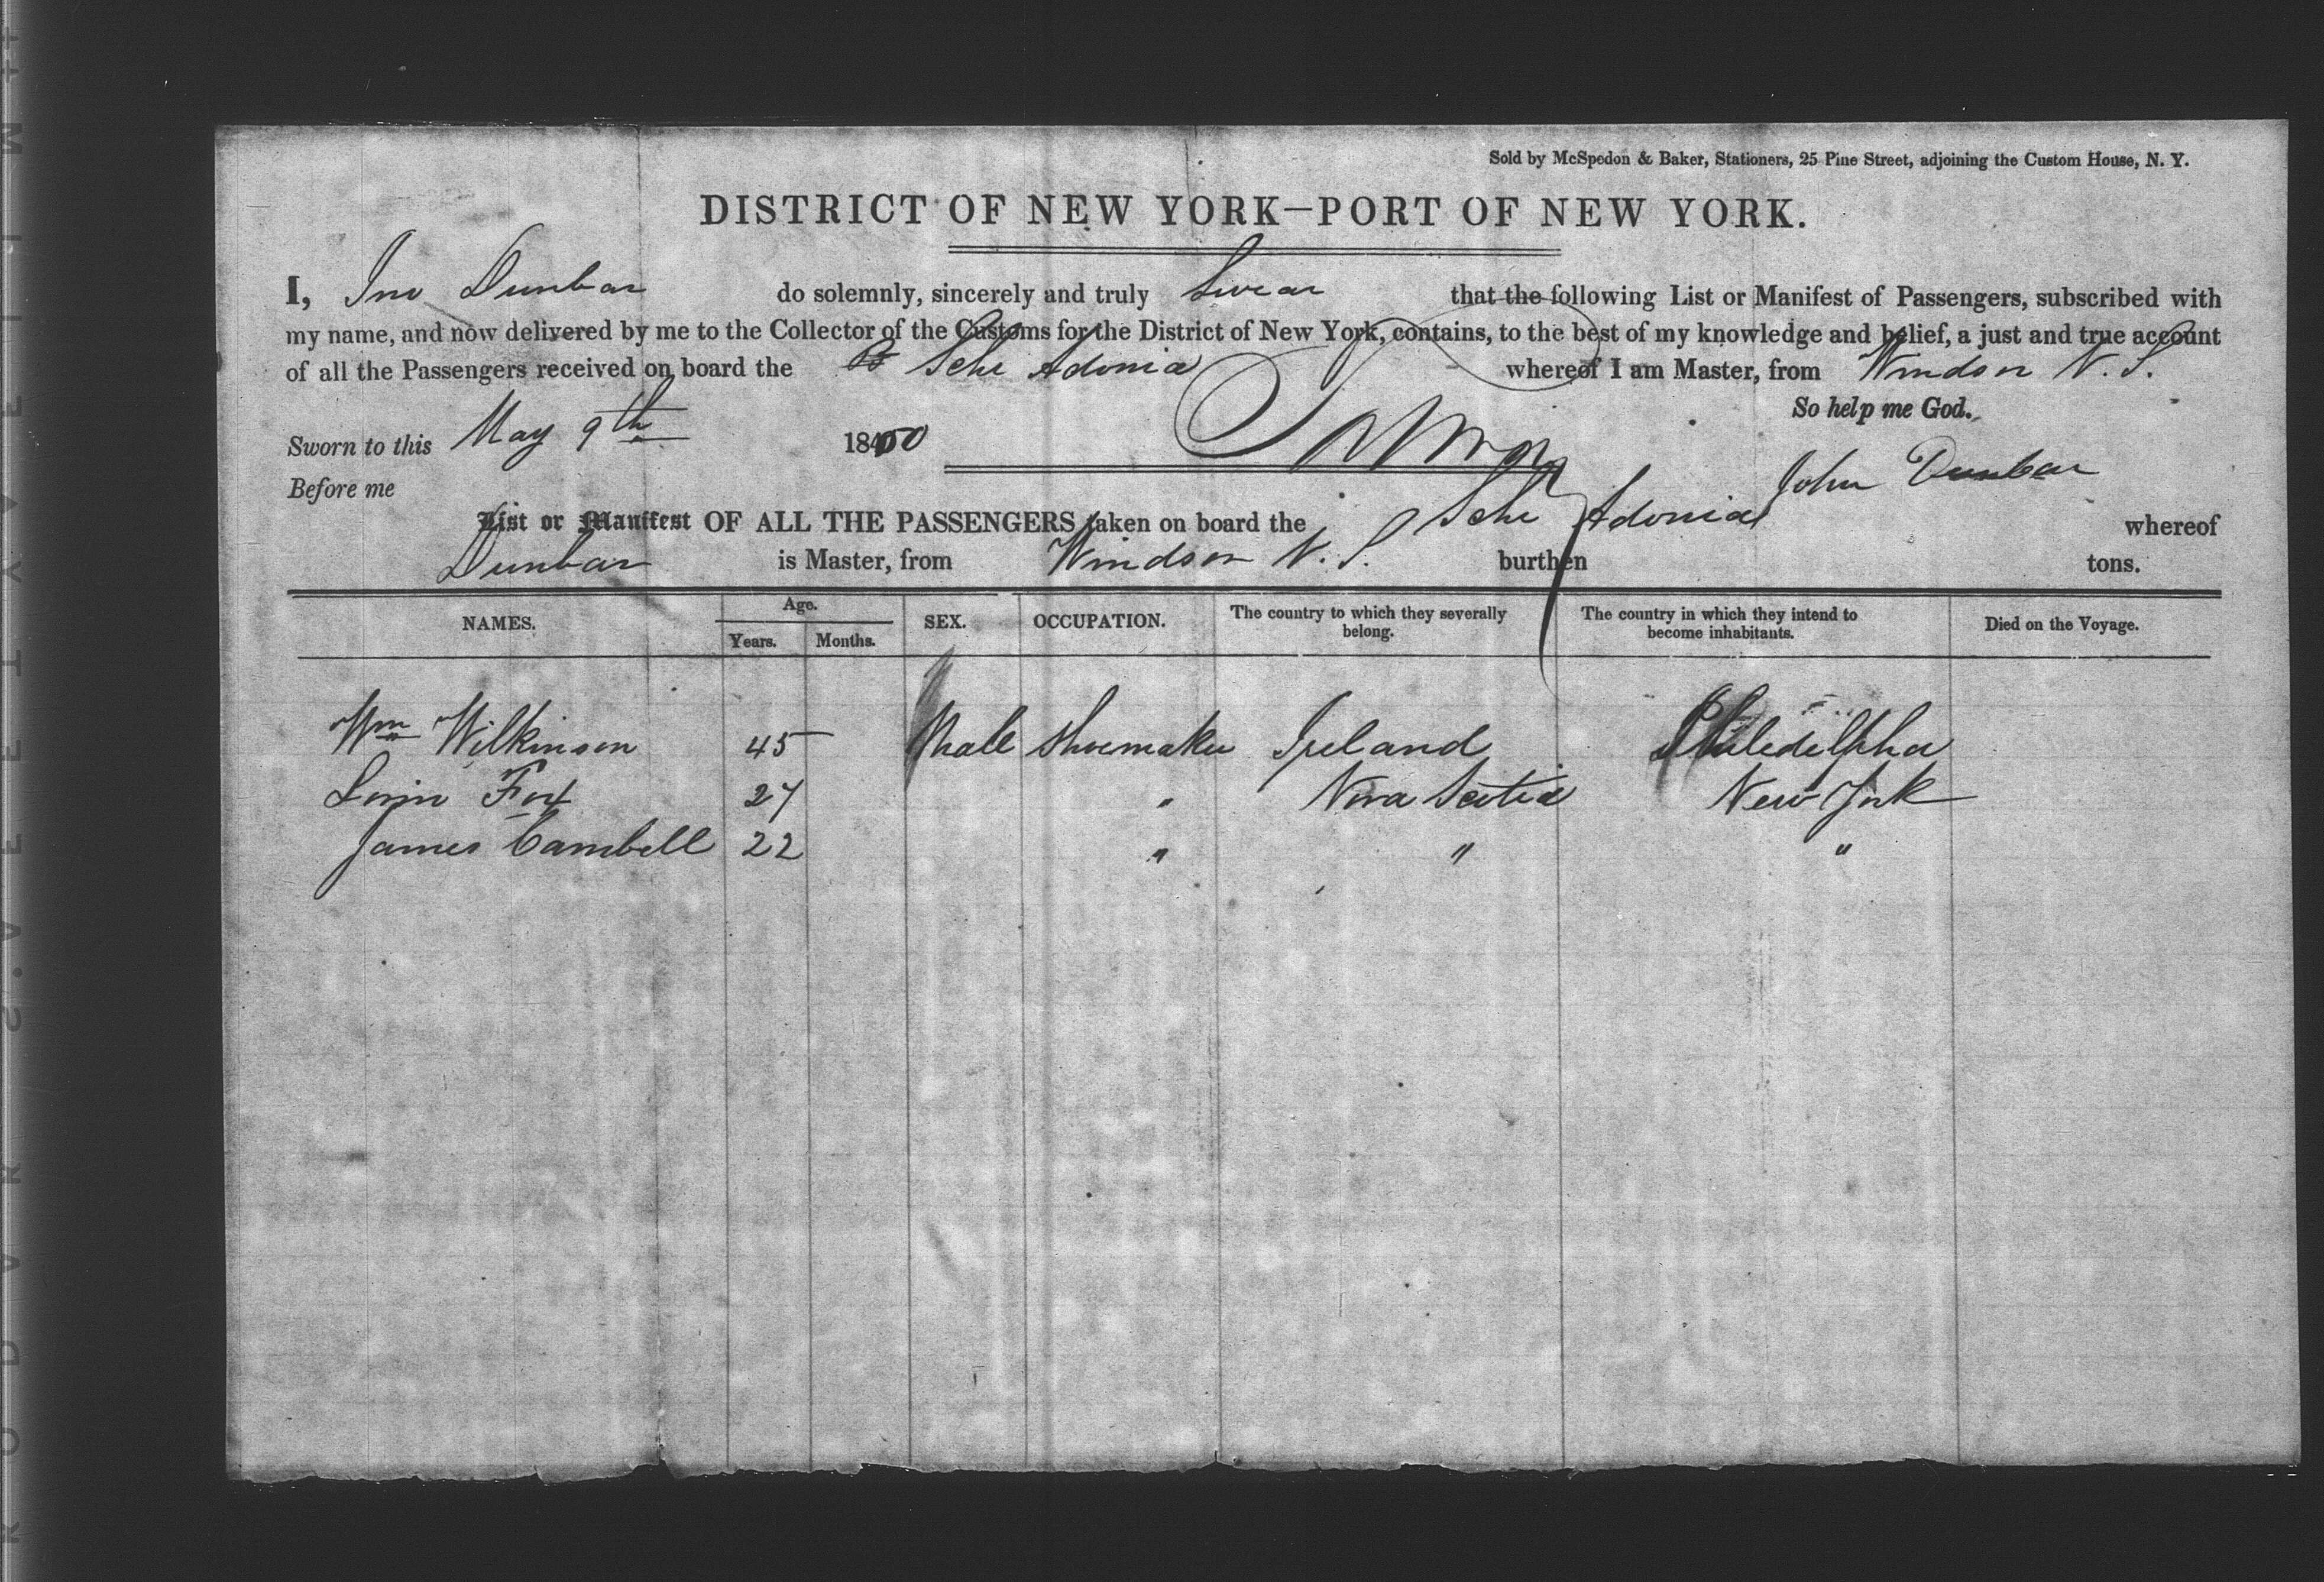 Sold by McSpedon & Baker, Stationers, 25 Pine Street, adjoining the Custom House, N. Y.
DISTRICT OF NEW YORK—PORT OF NEW YORK.
I, Jno Dunbar do solemnly, sincerely and truly Swear that the following List or Manifest of Passengers, subscribed with
my name, and now delivered by me to the Collector of the Customs for the District of New York, contains, to the best of my knowledge and belief, a just and true account
of all the Passengers received on board the Br Schr Adonia whereof I am Master, from Windsor N. S.
So help me God.
Sworn to this May 9th 1850
Before me
John Dunbar
List or Manifest OF ALL THE PASSENGERS taken on board the Schr Adonia whereof
Dunbar is Master, from Windsor N. S. burthen tons.
NAMES. Age. Years. Months. SEX. OCCUPATION. The country to which they severally belong. The country in which they intend to become inhabitants. Died on the Voyage.
Wm Wilkinson 45 Male Shoemaker Ireland Philedelpha
Fox 27 " Nova Scotia New York
James Cambell 22 " " "